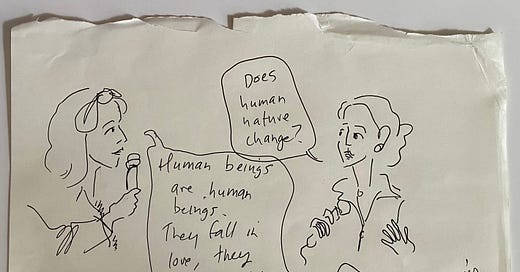 Does
human
nature
change?
Human beings
are human
beings.
They fall in
love, they